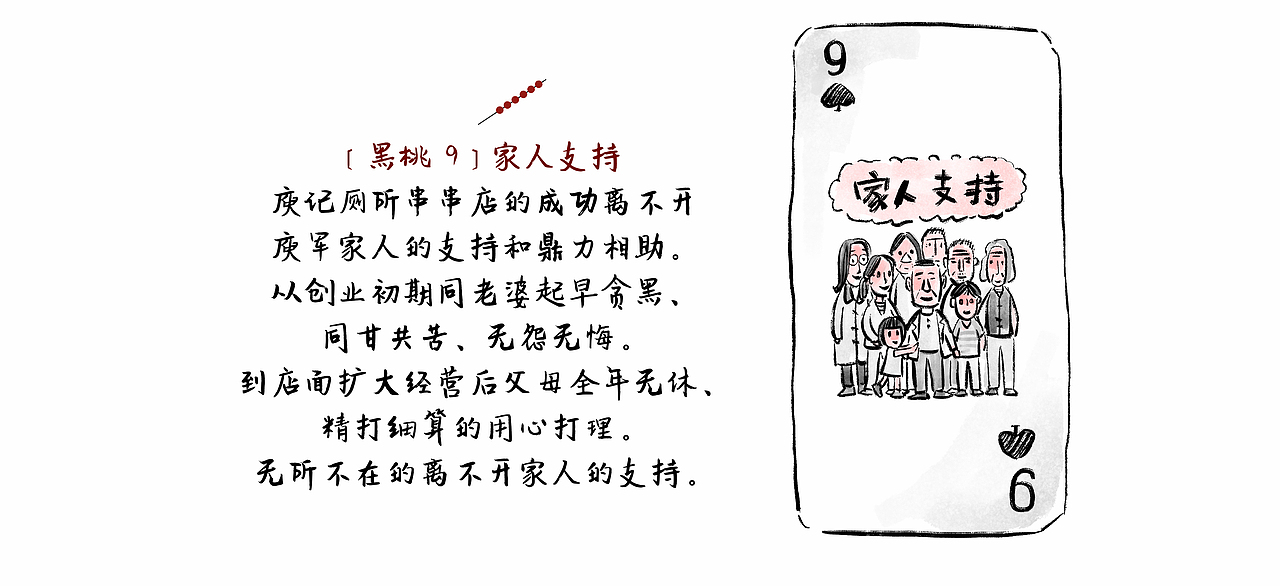 [黑桃 9]家人支持
庾记厕所串串店的成功离不开
庾军家人的支持和鼎力相助。
从创业初期同老婆起早贪黑、
同甘共苦、无怨无悔。
到店面扩大经营后父母全年无休、
精打细算的用心打理。
无所不在的离不开家人的支持。
9
家人支持
9